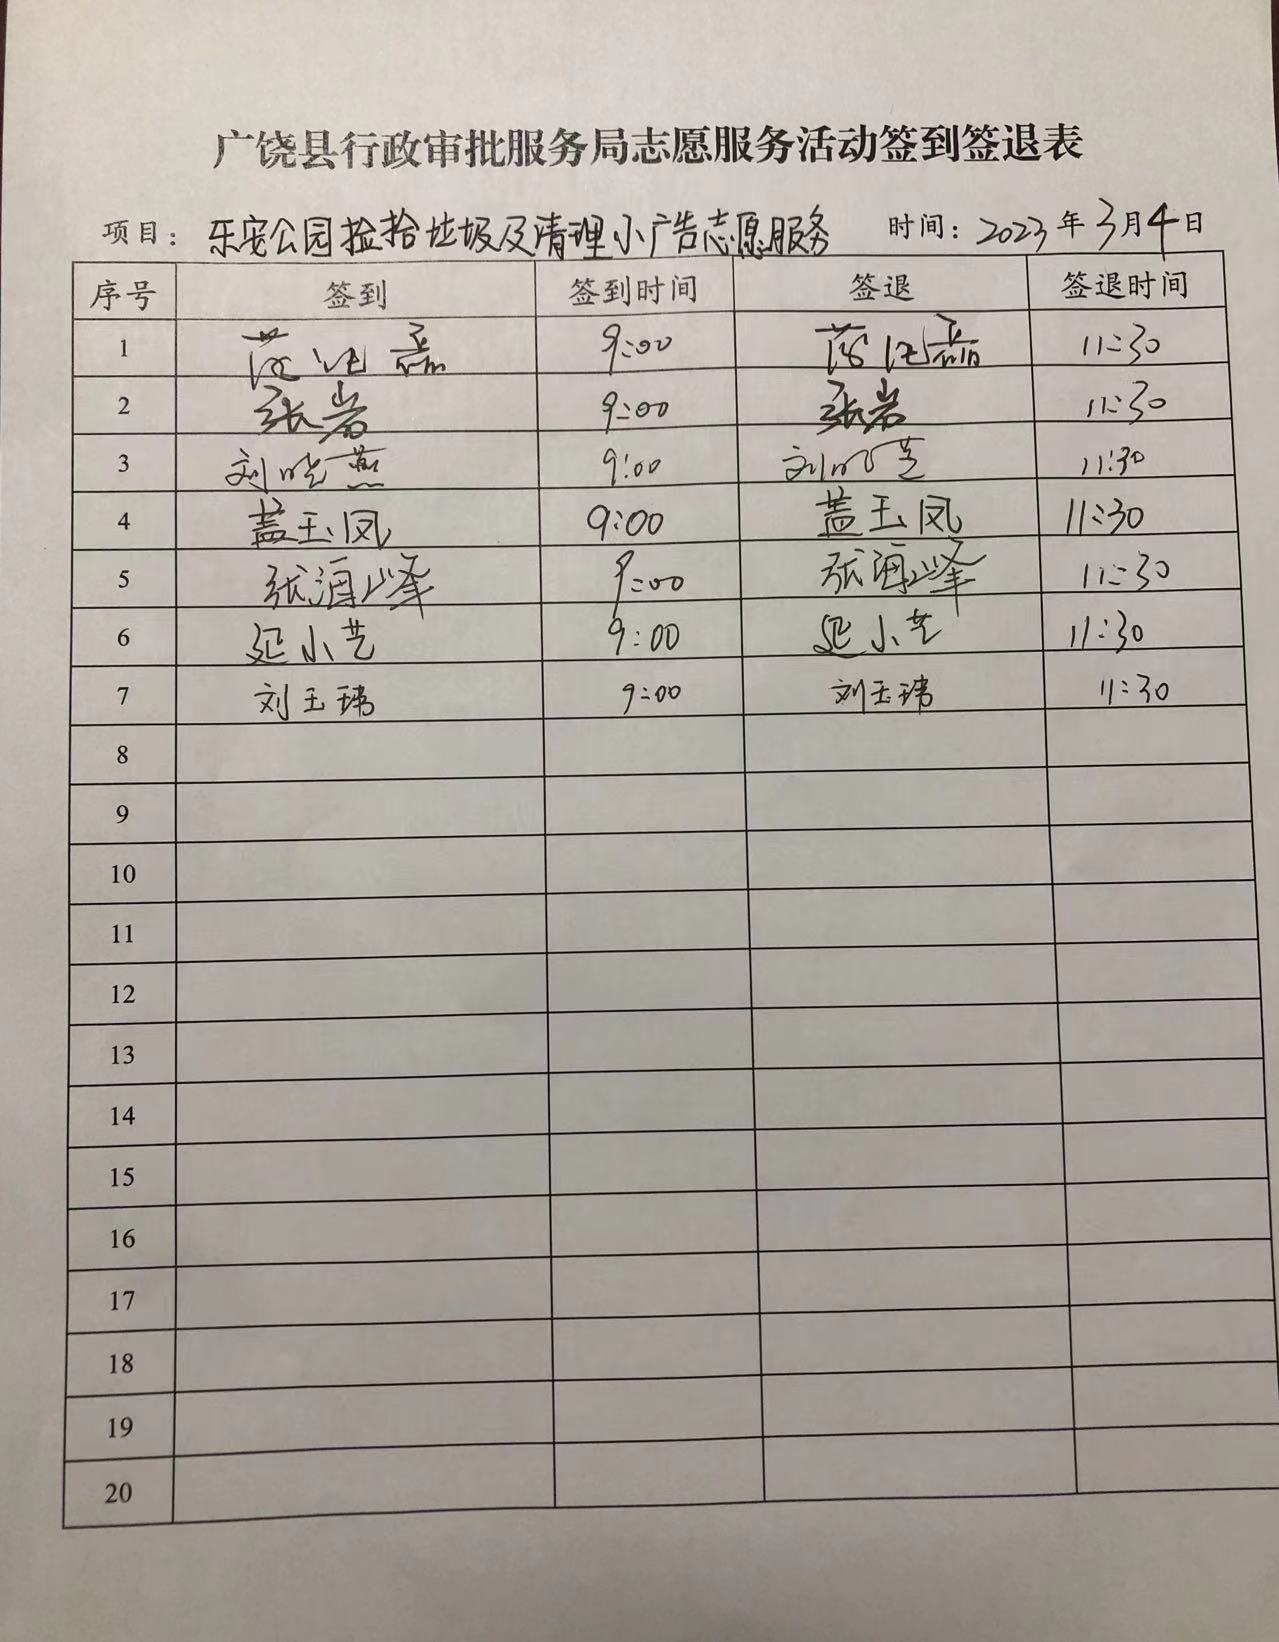 广饶县行政审批服务局志愿服务活动签到签退表
项目：乐安公园捡拾垃圾及清理小广告志愿服务 时间：2023年3月4日
序号 签到 签到时间 签退 签退时间
1 9:00 11:30
2 张岩 9:00 张岩 11:30
3 刘晓燕 9:00 刘晓 11:30
4 盖玉凤 9:00 盖玉凤 11:30
5 张海峰 9:00 张海峰 11:30
6 延小艺 9:00 延小艺 11:30
7 刘玉玮 9:00 刘玉玮 11:30
8
9
10
11
12
13
14
15
16
17
18
19
20